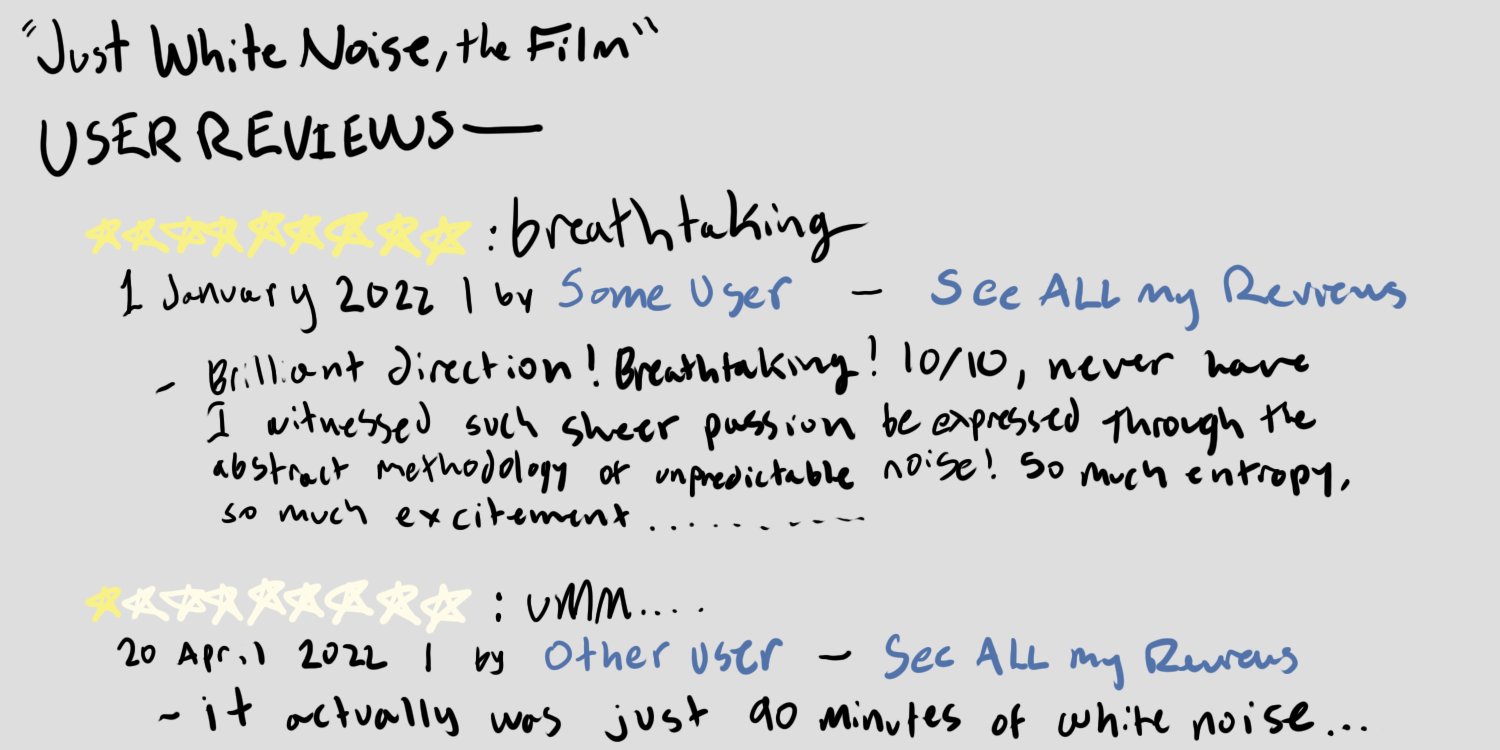 "Just White Noise, the Film"
USER REVIEWS—
: breathtaking
1 January 2022 | by Some User — See ALL my Reviews
- Brilliant direction! Breathtaking! 10/10, never have
I witnessed such sheer passion be expressed through the
abstract methodology of unpredictable noise! So much entropy,
so much excitement..........
: uMM....
20 April 2022 | by Other user — See ALL my Reviews
- it actually was just 90 minutes of white noise...